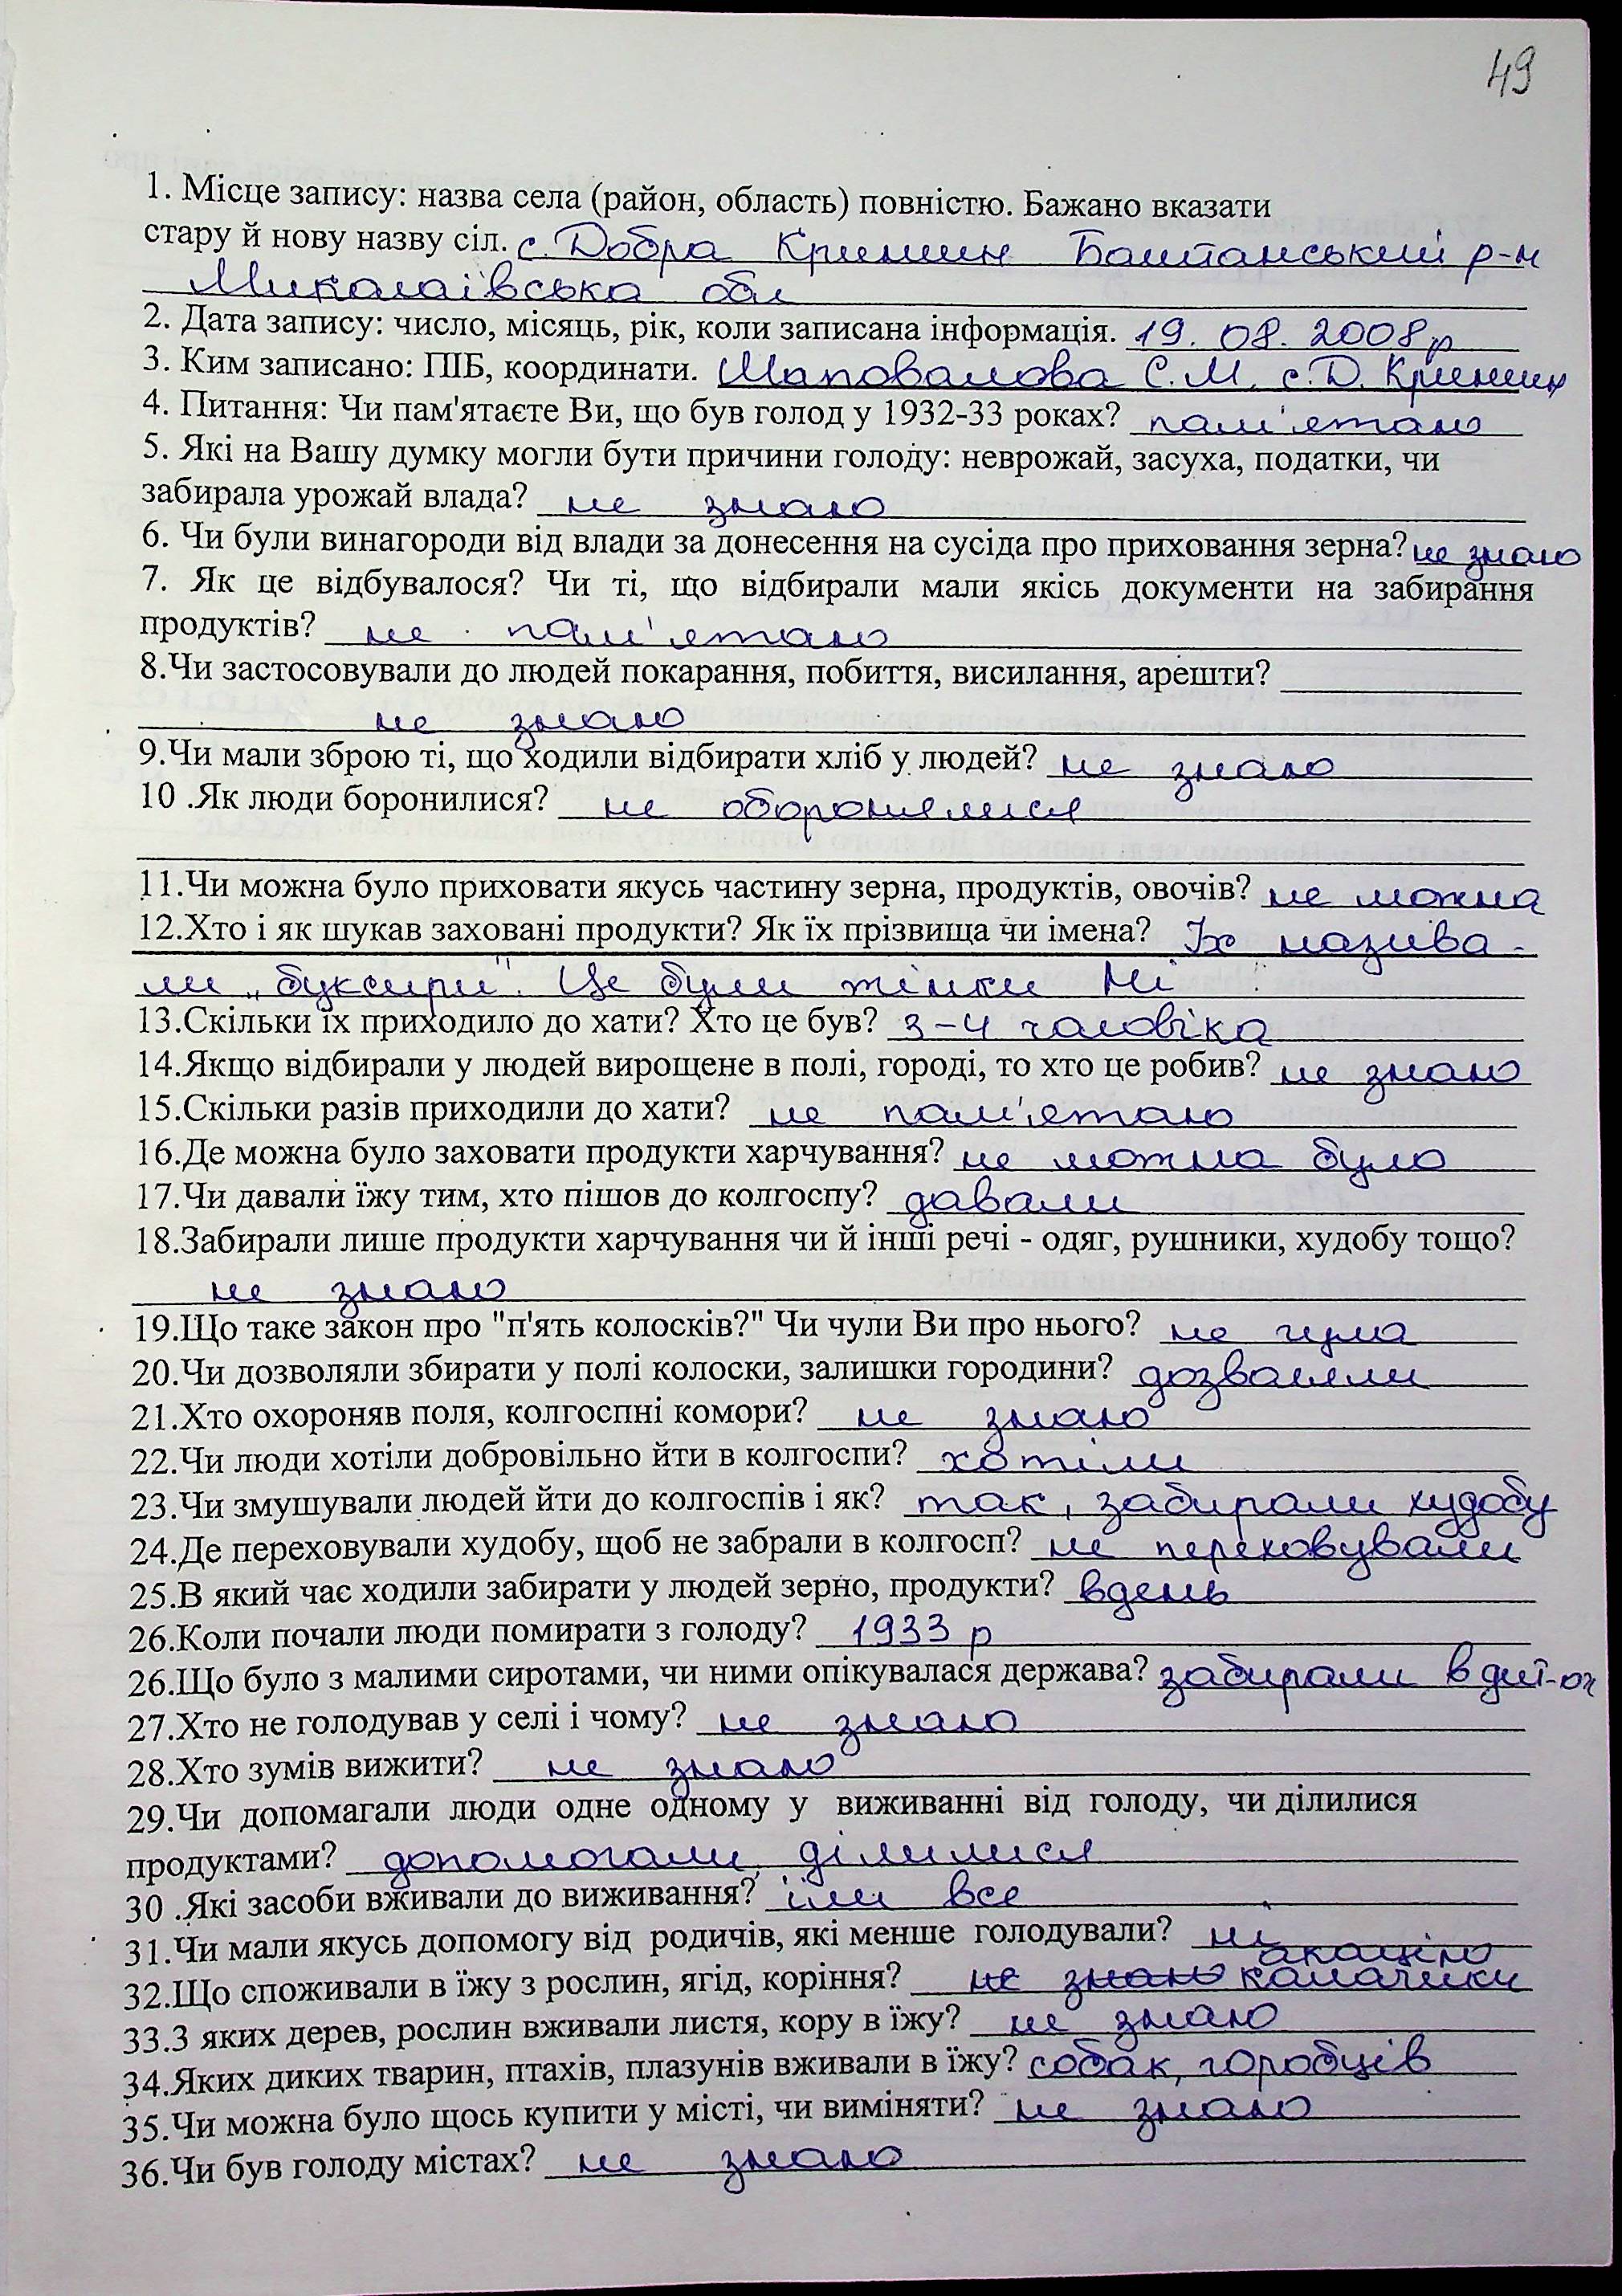 49
1. Місце запису: назва села (район, область) повністю. Бажано вказати
стару й нову назву сіл. с. Добра Криниця Баштанський р-н
Миколаївська обл
2. Дата запису: число, місяць, рік, коли записана інформація. 19. 08. 2008р
3. Ким записано: ПІБ, координати. Шаповалова С.М. с. Д. Криниця
4. Питання: Чи пам'ятаєте Ви, що був голод у 1932-33 роках? пам'ятаю
5. Які на Вашу думку могли бути причини голоду: неврожай, засуха, податки, чи
забирала урожай влада? не знаю
6. Чи були винагороди від влади за донесення на сусіда про приховання зерна? не знаю
7. Як це відбувалося? Чи ті, що відбирали мали якісь документи на забирання
продуктів? не пам'ятаю
8.Чи застосовували до людей покарання, побиття, висилання, арешти?
не знаю
9.Чи мали зброю ті, що ходили відбирати хліб у людей? не знаю
10 .Як люди боронилися? не оборонялися
11.Чи можна було приховати якусь частину зерна, продуктів, овочів? не можна
12.Хто і як шукав заховані продукти? Як їх прізвища чи імена? Їх назива-
ли „буксири". Це були жінки
13.Скільки їх приходило до хати? Хто це був? 3-4 чоловіка
14.Якщо відбирали у людей вирощене в полі, городі, то хто це робив? не знаю
15.Скільки разів приходили до хати? не пам'ятаю
16.Де можна було заховати продукти харчування? не можна було
17.Чи давали їжу тим, хто пішов до колгоспу? давали
18.Забирали лише продукти харчування чи й інші речі - одяг, рушники, худобу тощо?
не знаю
19.Що таке закон про "п'ять колосків?" Чи чули Ви про нього? не чула
20.Чи дозволяли збирати у полі колоски, залишки городини? дозволяли
21.Хто охороняв поля, колгоспні комори? не знаю
22.Чи люди хотіли добровільно йти в колгоспи? хотіли
23.Чи змушували людей йти до колгоспів і як? так, забирали худобу
24.Де переховували худобу, щоб не забрали в колгосп? не переховували
25.В який час ходили забирати у людей зерно, продукти? вдень
26.Коли почали люди помирати з голоду? 1933 р
26.Що було з малими сиротами, чи ними опікувалася держава? забирали в
27.Хто не голодував у селі і чому? не знаю
28.Хто зумів вижити? не знаю
29.Чи допомагали люди одне одному у виживанні від голоду, чи ділилися
продуктами? допомогали, ділилися
30 .Які засоби вживали до виживання? їли все
31.Чи мали якусь допомогу від родичів, які менше голодували? ні
акацію
32.Що споживали в їжу з рослин, ягід, коріння? не знаю калачики
33.З яких дерев, рослин вживали листя, кору в їжу? не знаю
34.Яких диких тварин, птахів, плазунів вживали в їжу? собак, горобців
35.Чи можна було щось купити у місті, чи виміняти? не знаю
36.Чи був голоду містах? не знаю